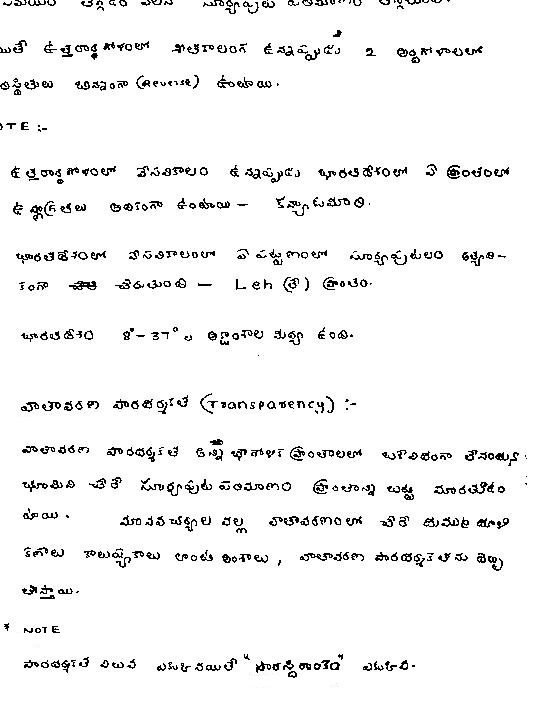 సమయం తగ్గడం వలన సూర్యపుటం పరిమాణం తగ్గుతుంది.
ఉత్తరార్ధగోళంలో శీతాకాలంగ ఉన్నప్పుడు 2 అర్ధగోళాలలో
భిన్నంగా (Reverse) ఉంటాయి.
NOTE :-
ఉత్తరార్ధగోళంలో వేసవికాలం ఉన్నప్పుడు భారతదేశంలో ఏ ప్రాంతంలో
ఉష్ణోగ్రతలు అధికంగా ఉంటాయి – కన్యాకుమారి.
భారతదేశంలో వేసవికాలంలో ఏ పట్టణంలో సూర్యపుటం అత్యధి-
కంగా చేరుతుంది – Leh (లే) ప్రాంతం.
భారతదేశం 8°-37° ల అక్షాంశాల మధ్య ఉంది.
వాతావరణ పారదర్శకత (Transparency) :-
వాతావరణ పారదర్శకత అన్ని భౌగోళిక ప్రాంతాలలో ఒకేవిధంగా లేనందున
భూమిని చేరే సూర్యపుటం పరిమాణం ప్రాంతాన్ని బట్టి మారుతుం
టాయి. మానవచర్యల వల్ల వాతావరణంలో చేరే దుమ్ము ధూళి
కణాలు కాలుష్యకాలు లాంటి అంశాలు, వాతావరణ పారదర్శకతను తగ్గి
స్తాయి.
* NOTE
పారదర్శకత విలువ ఎక్కువయితే ఎక్కువ.